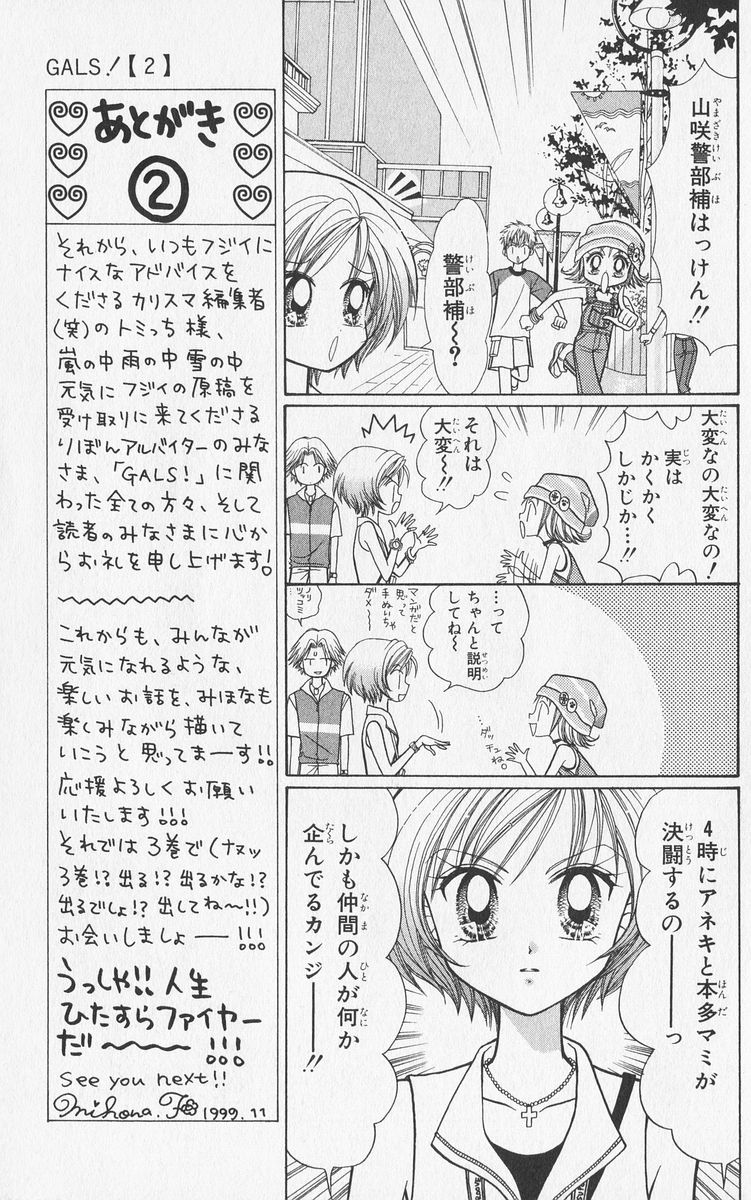 山咲警部補はっけん!!
警部補〜?
大変なの大変なの!
実は
かくかく
しかじか…!!
それは
大変〜!!
…って
ちゃんと説明
してね〜
マンガだと
思って
手ぬいちゃ
ダメ〜
ノリ
ツッコミ
…ダッチュ
ね。
4時にアネキと本多マミが
決闘するの——っ
しかも仲間の人が何か
企んでるカンジ——!!
GALS!【2】
あとがき
②
それから、いつもフジイに
ナイスなアドバイスを
くださる カリスマ編集者
(笑)の トミっち 様、
嵐の中 雨の中 雪の中
元気に フジイの 原稿を
受け取りに 来てくださる
りぼんアルバイターのみな
さま、「GALS!」に関
わった全ての方々、そして
読者のみなさまに心か
らお礼を申し上げます!
これからも、みんなが
元気になれるような、
楽しいお話を、みほなも
楽しみながら描いて
いこうと思ってまーす!!
応援よろしくお願い
いたします!!!
それでは3巻で(ナヌッ
3巻!?出る!?出るかな!?
出るでしょ!?出してね〜!!)
お会いしましょ——!!!
うっしゃ!!人生
ひたすらファイヤー
だ〜〜〜!!!
See you next!!
Mihona.F 1999.11